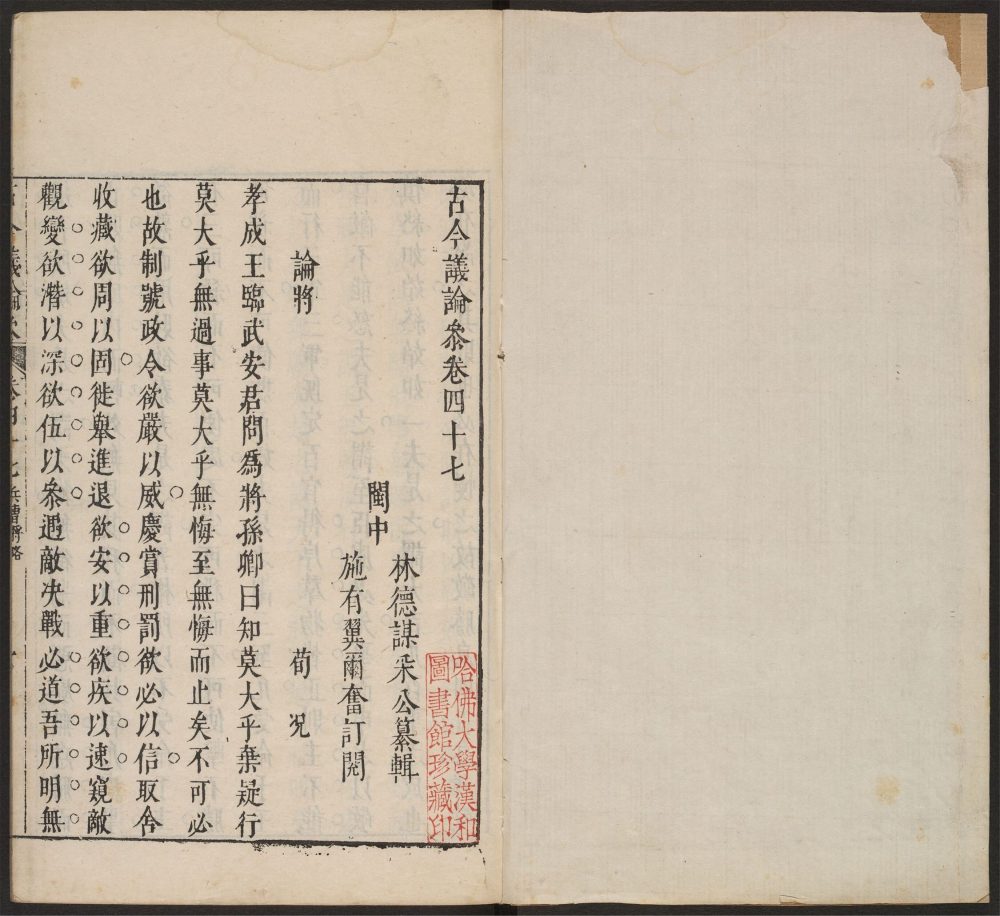 古今議論叅卷四十七
閩中
林德謀采公纂輯
施有翼爾奮訂閱
論將
荀況
孝成王臨武安君問爲將孫卿曰知莫大乎棄疑行
莫大乎無過事莫大乎無悔至無悔而止矣不可必
也故制號政令欲嚴以威慶賞刑罰欲必以信取舍
收藏欲周以固徙舉進退欲安以重欲疾以速窺敵
觀變欲潛以深欲伍以叅遇敵决戰必道吾所明無
卷四十七
一
哈佛大學漢和
圖書館珍藏印